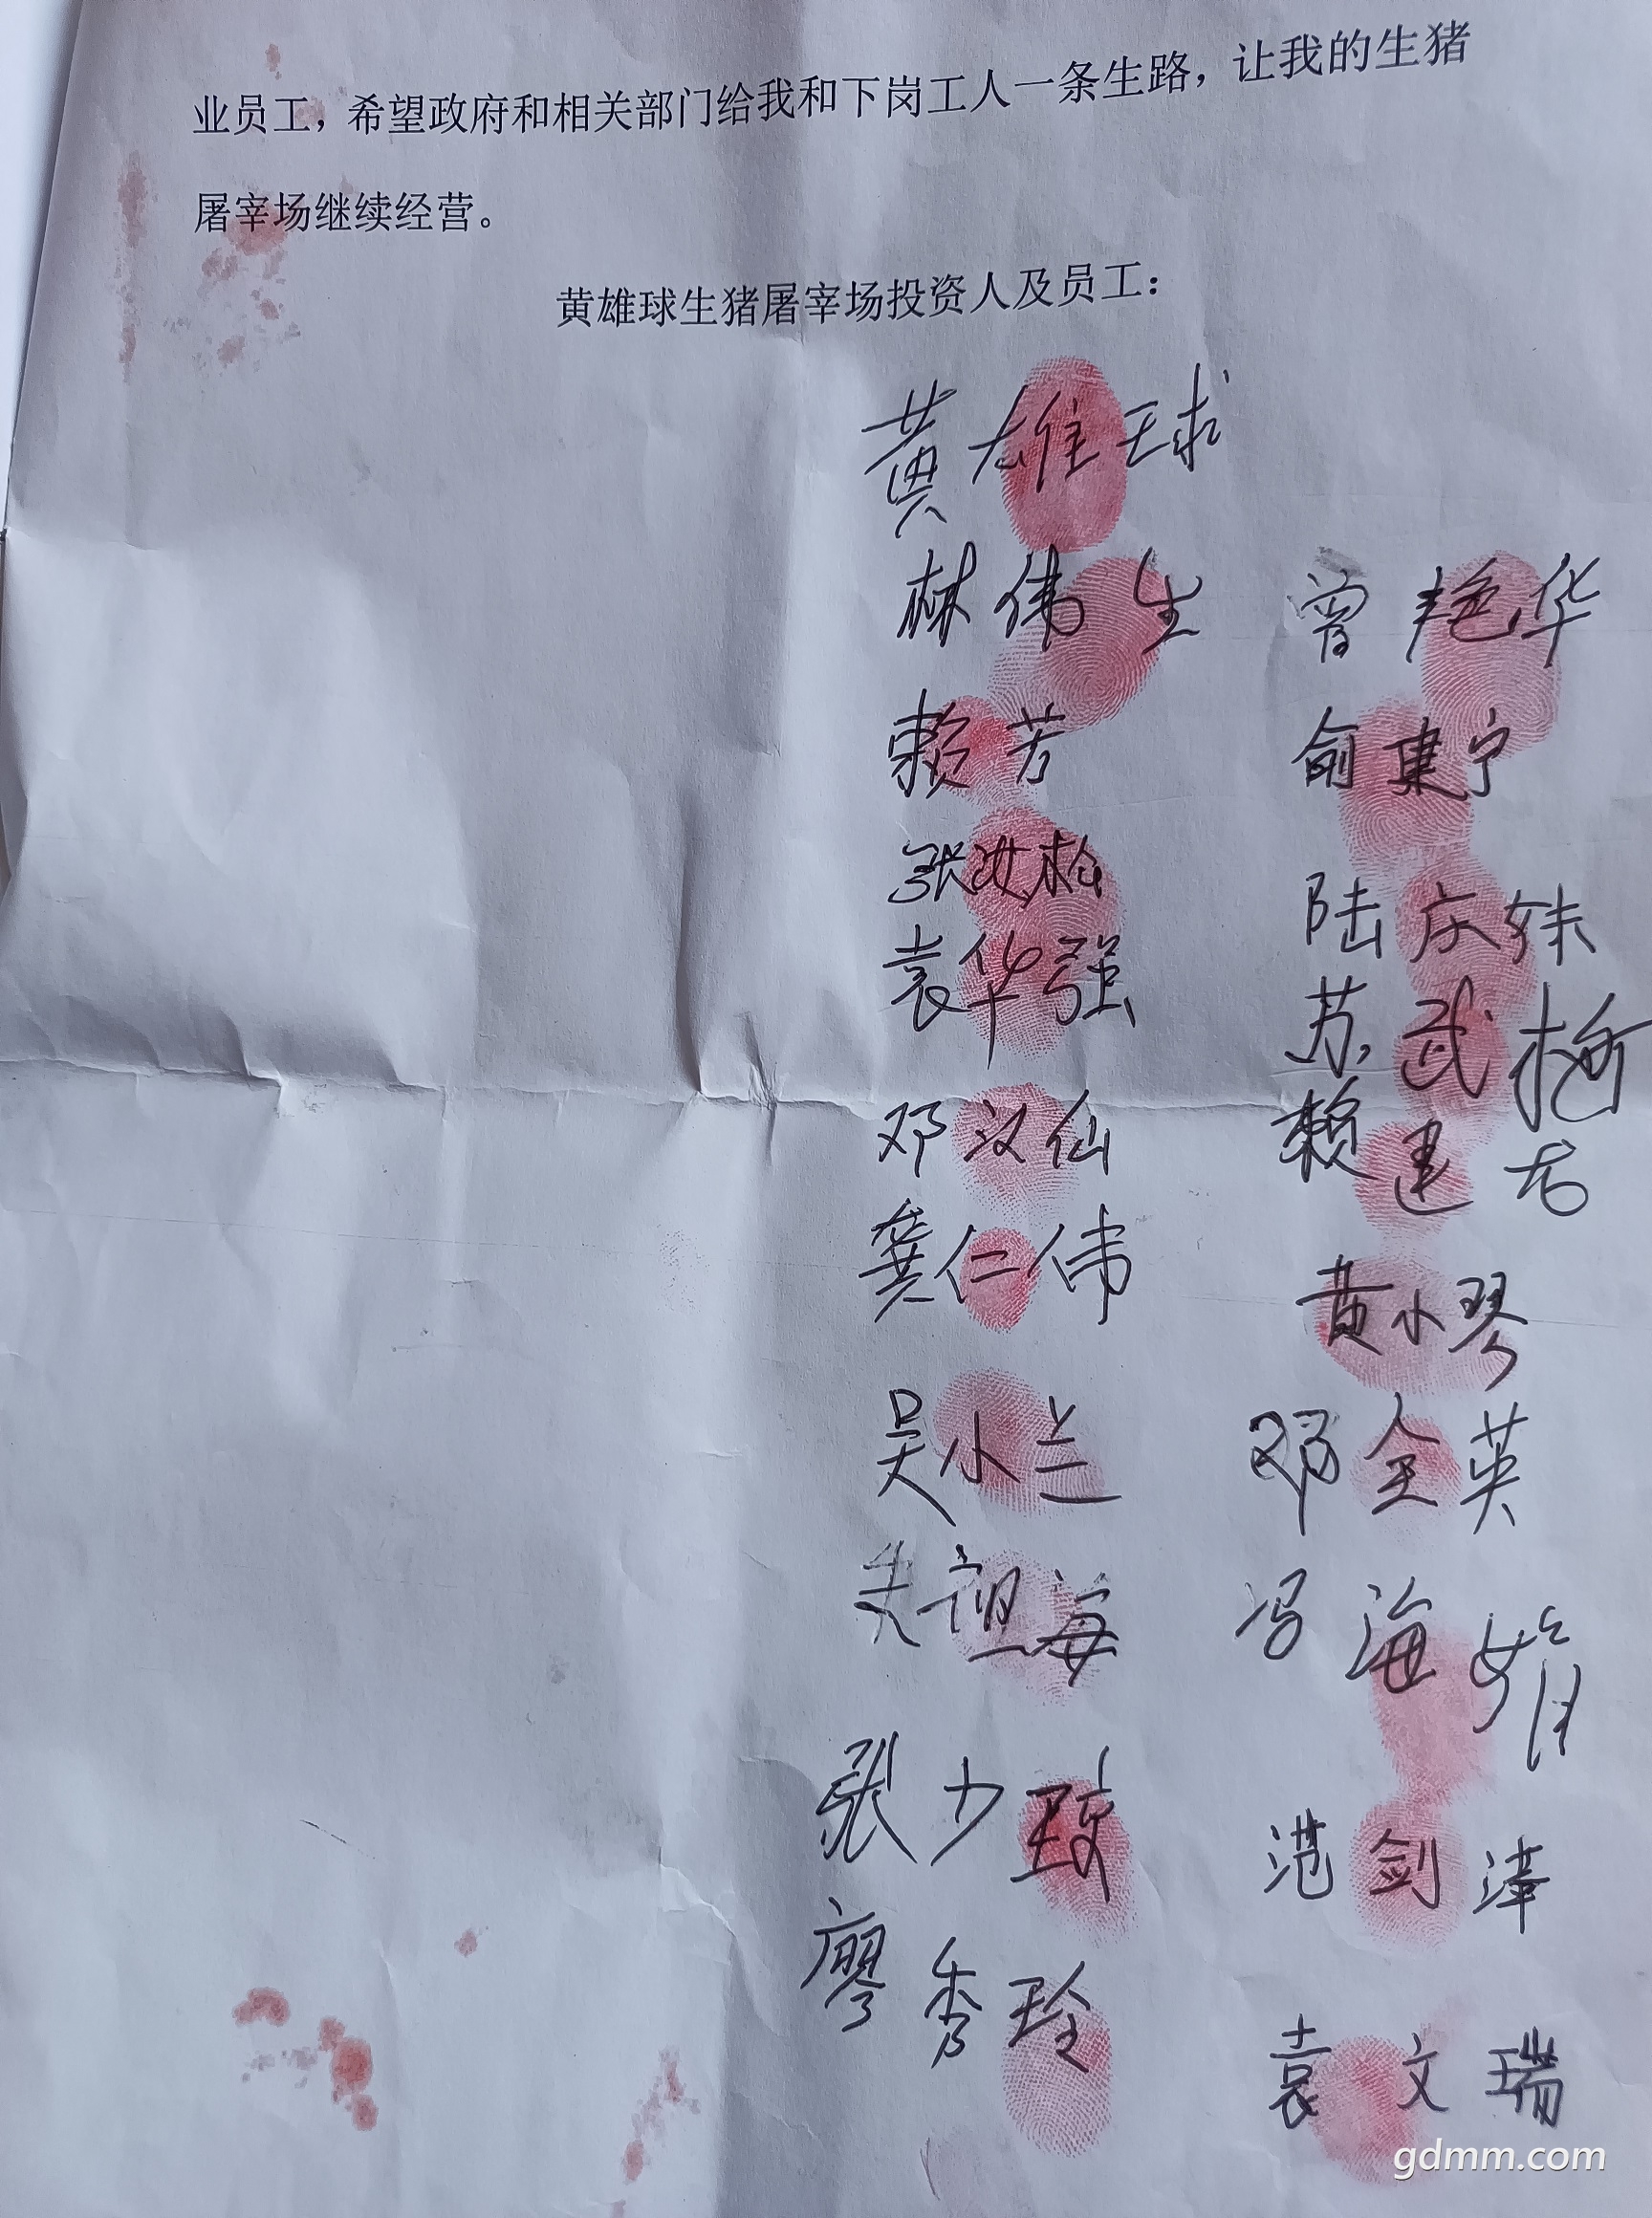 业员工，希望政府和相关部门给我和下岗工人一条生路，让我的生猪
屠宰场继续经营。
黄雄球生猪屠宰场投资人及员工：
黄雄球
林伟生
赖芳
张汝松
袁华强
邓汉仙
龚仁伟
吴小兰
祖海
张少琼
廖秀玲
曾艳华
俞建宁
陆庆妹
苏武梅
赖建
黄小琴
邓全英
冯海娟
范剑
袁文瑞
gdmm.com